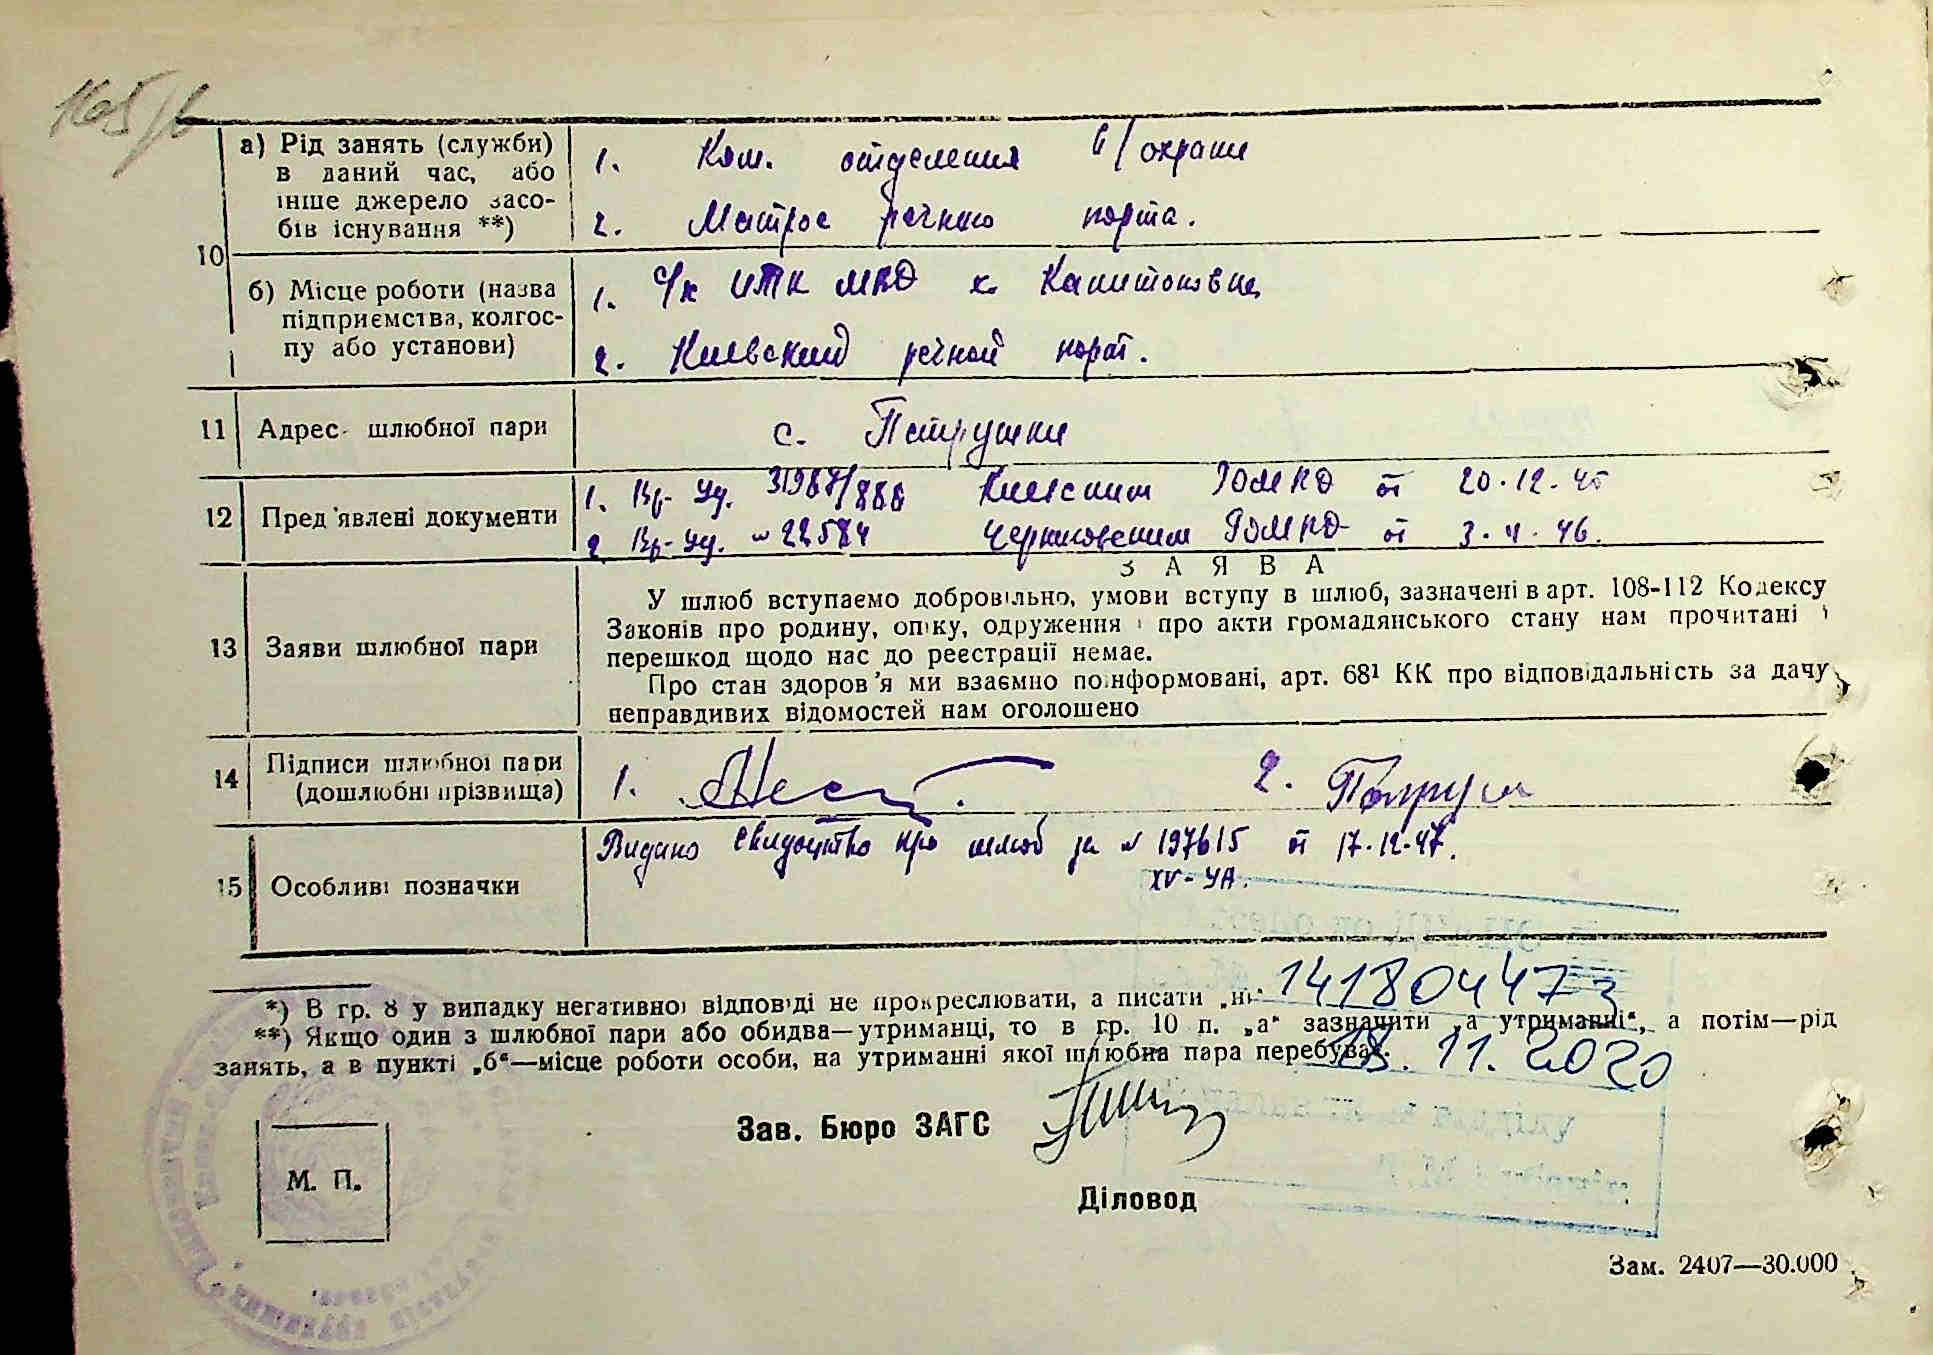 а) Рід занять (служби)
в даний час, або
інше джерело засо-
бів існування **)
1. Ком. отделения в/охраны
2. Матрос речного порта.
10
б) Місце роботи (назва
підприємства, колгос-
пу або установи)
1. с/х ИТК МВД х. Капитоновка
2. Киевский речной порт.
11 Адрес шлюбної пари
с. Петрушки
12 Пред'явлені документи
1. Вр. уд. 31987/888 Киевским РОМВД от 20.12.45
2. Вр-уд. № 22584 РОМВД от 46.
З А Я В А
13 Заяви шлюбної пари
У шлюб вступаємо добровільно, умови вступу в шлюб, зазначені в арт. 108-112 Кодексу
Законів про родину, опіку, одруження і про акти громадянського стану нам прочитані і
перешкод щодо нас до реєстрації немає.
Про стан здоров'я ми взаємно поінформовані, арт. 68¹ КК про відповідальність за дачу
неправдивих відомостей нам оголошено
14 Підписи шлюбної пари
(дошлюбні прізвища)
1. 2.
15 Особливі позначки
Видано свидоцтво про шлюб за № 197615 от 17.12.47.
XV-УА.
*) В гр. 8 у випадку негативної відповіді не прокреслювати, а писати „ні
141804473
**) Якщо один з шлюбної пари або обидва—утриманці, то в гр. 10 п. „а“ зазначити „а утриманні“, а потім—рід
занять, а в пункті „б“—місце роботи особи, на утриманні якої шлюбна пара перебуває.
18.11.2020
Зав. Бюро ЗАГС
М. П.
Діловод
Зам. 2407—30.000